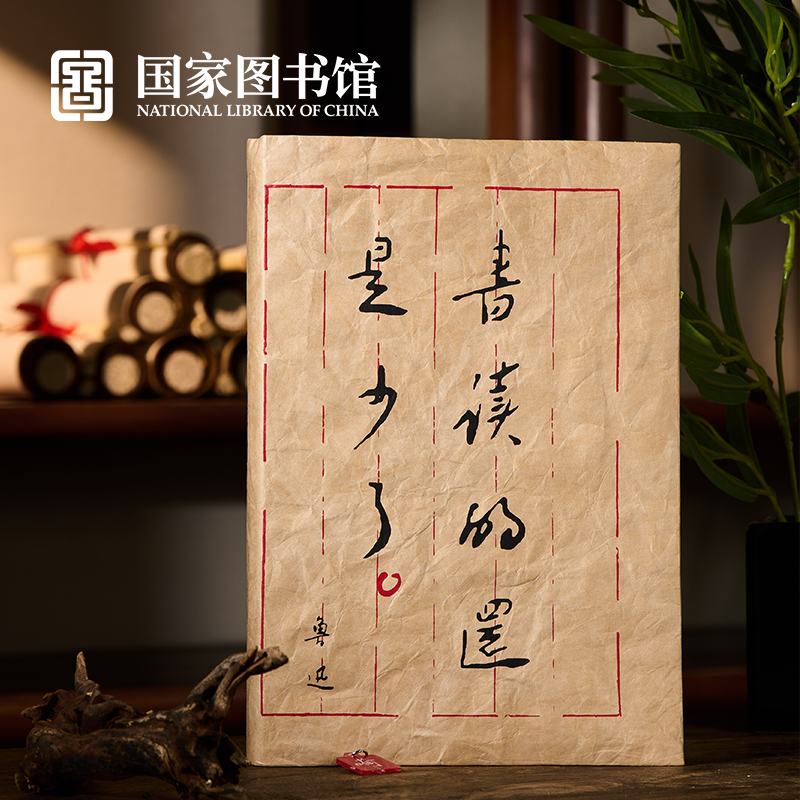 国家图书馆
NATIONAL LIBRARY OF CHINA
書读的還
是少了。
鲁迅